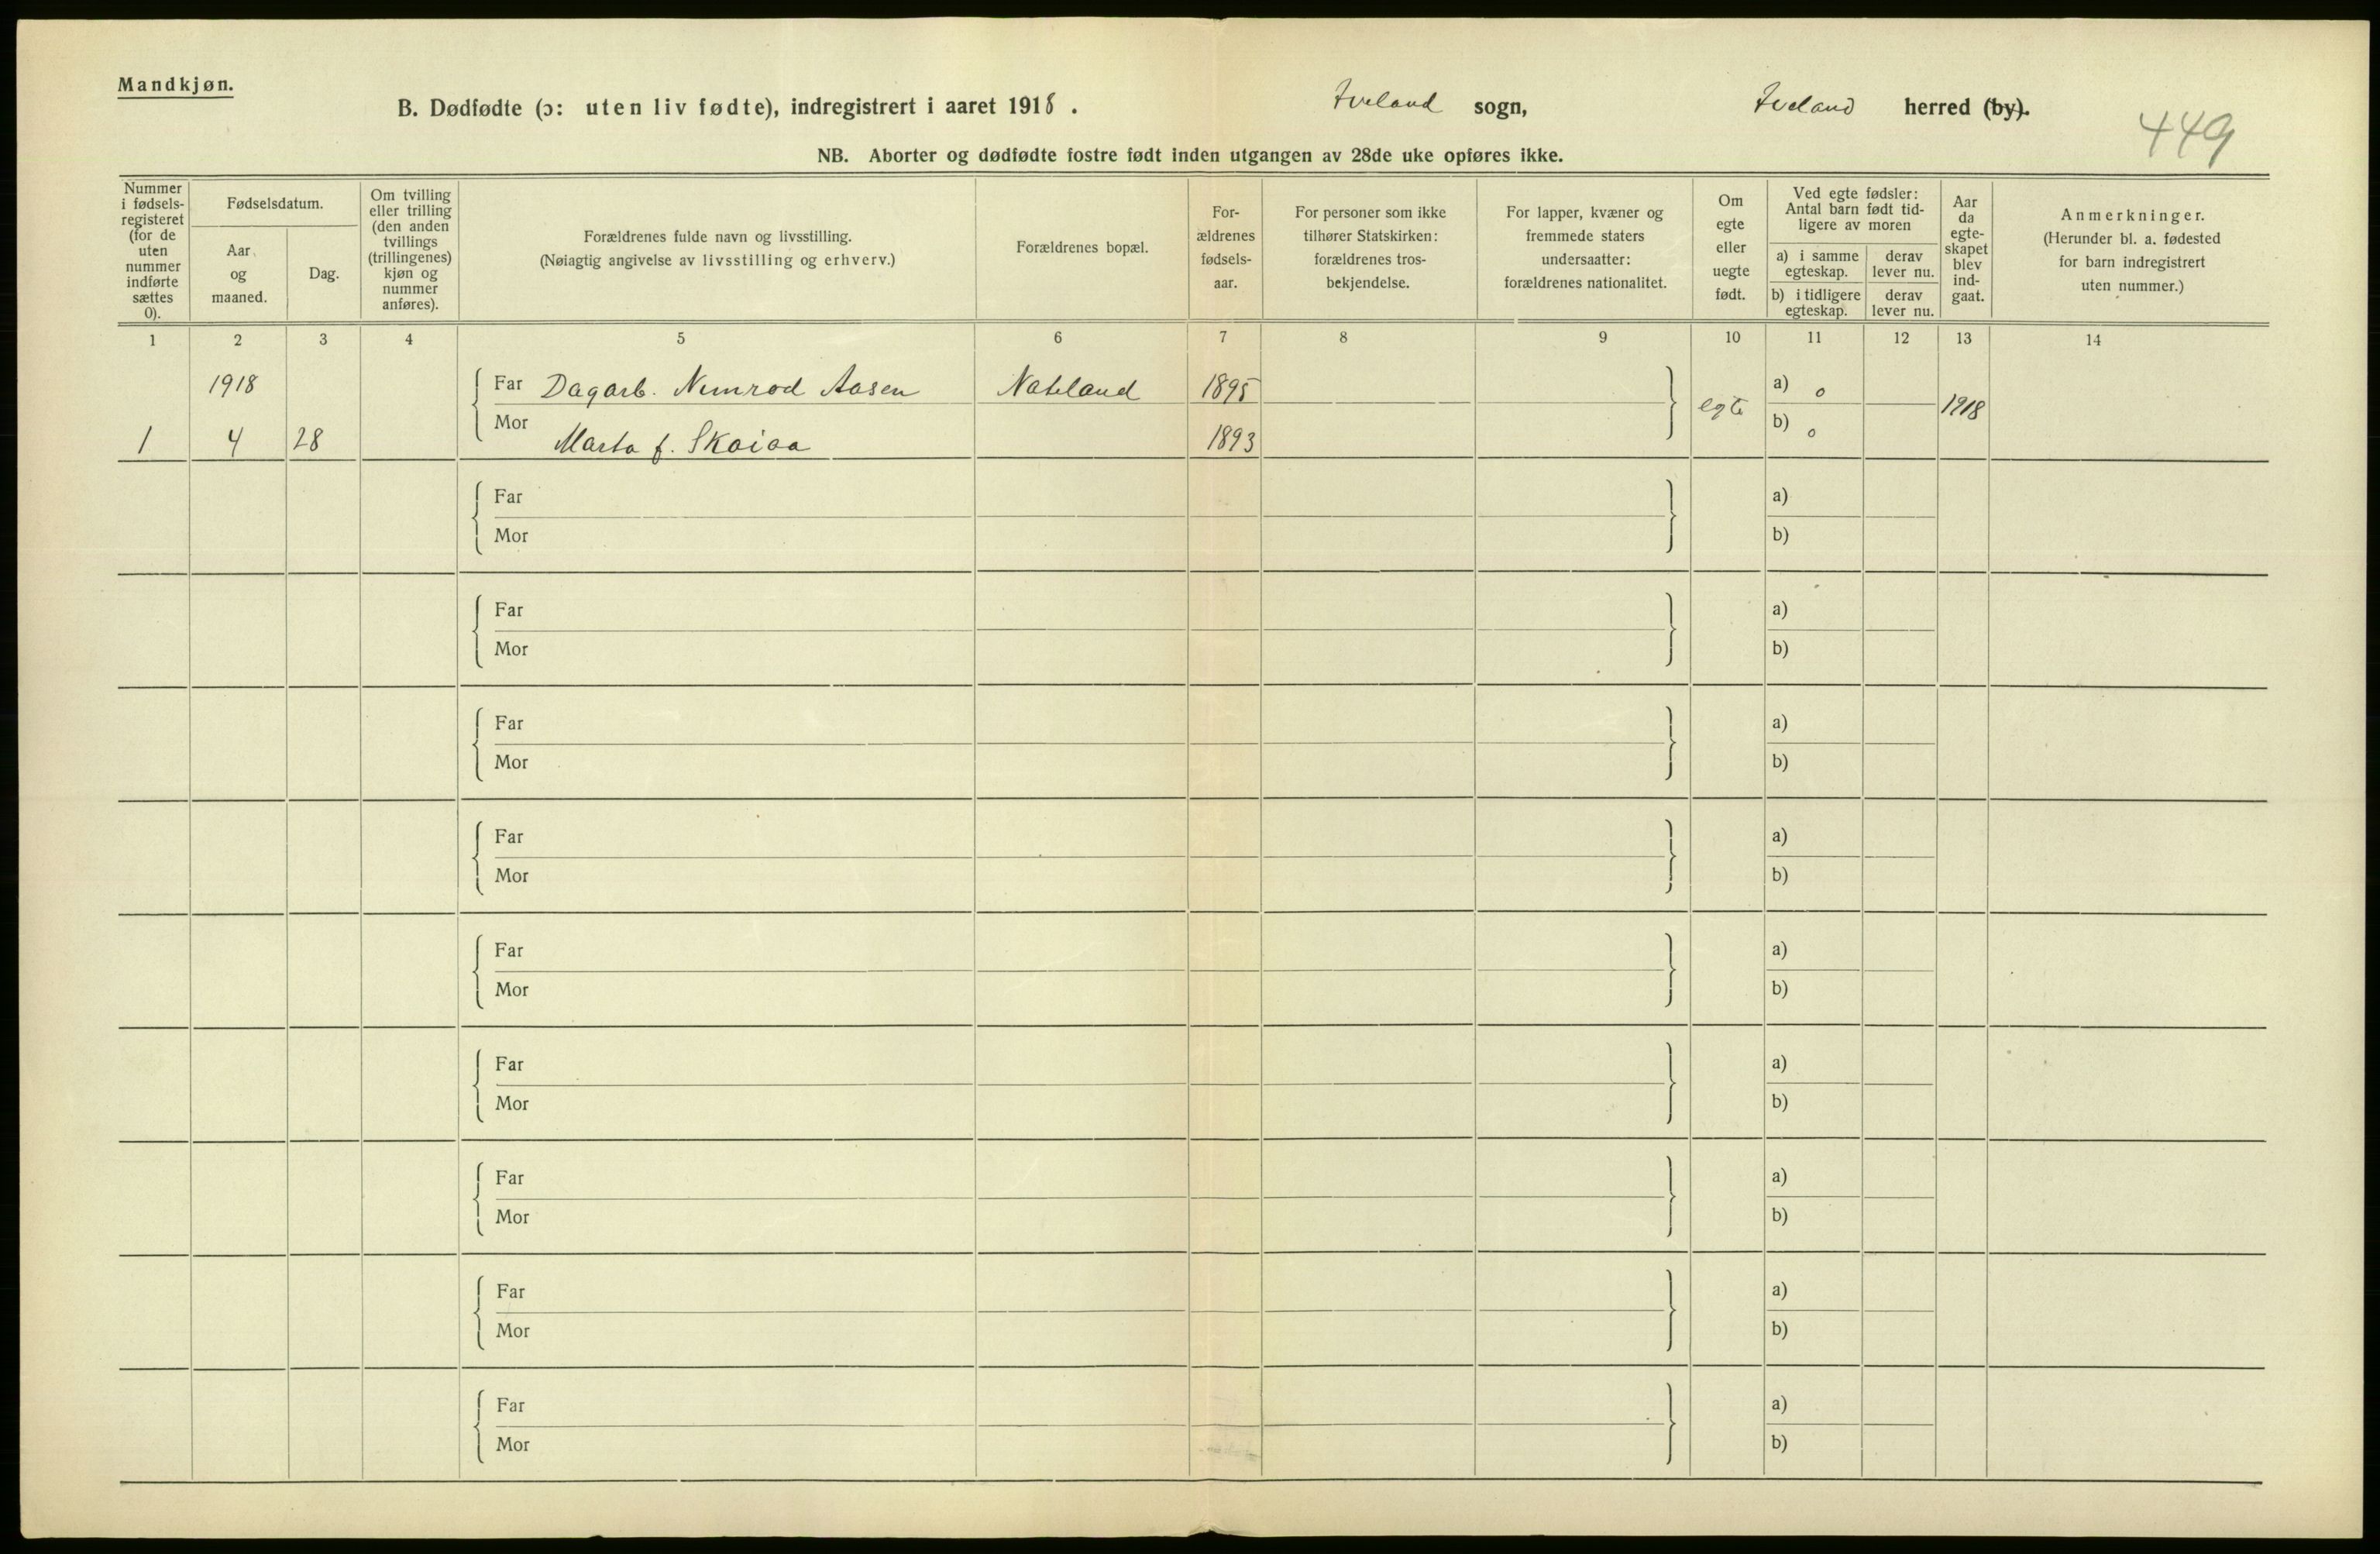 Mandkjøn.
B. Dødfødte (ɔ: uten liv fødte), indregistrert i aaret 1918. Iveland sogn, Iveland herred (by).
449
NB. Aborter og dødfødte fostre født inden utgangen av 28de uke opføres ikke.
Nummer i fødsels-registeret (for de uten nummer indførte sættes 0).
Fødselsdatum.
Aar og maaned.
Dag.
Om tvilling eller trilling (den anden tvillings (trillingenes) kjøn og nummer anføres).
Forældrenes fulde navn og livsstilling.
(Nøiagtig angivelse av livsstilling og erhverv.)
Forældrenes bopæl.
For-ældrenes fødsels-aar.
For personer som ikke tilhører Statskirken: forældrenes tros-bekjendelse.
For lapper, kvæner og fremmede staters undersaatter: forældrenes nationalitet.
Om egte eller uegte født.
Ved egte fødsler: Antal barn født tid-ligere av moren
a) i samme egteskap.
derav lever nu.
b) i tidligere egteskap.
derav lever nu.
Aar da egte-skapet blev ind-gaat.
Anmerkninger.
(Herunder bl. a. fødested for barn indregistrert uten nummer.)
1 2 3 4 5 6 7 8 9 10 11 12 13 14
1918 Far Dagarb. Nimrod Aasen Nateland 1895 egte a) 0 1918
1 4 28 Mor Marta f. Skaiaa 1893 b) 0
Far a)
Mor b)
Far a)
Mor b)
Far a)
Mor b)
Far a)
Mor b)
Far a)
Mor b)
Far a)
Mor b)
Far a)
Mor b)
Far a)
Mor b)
Far a)
Mor b)